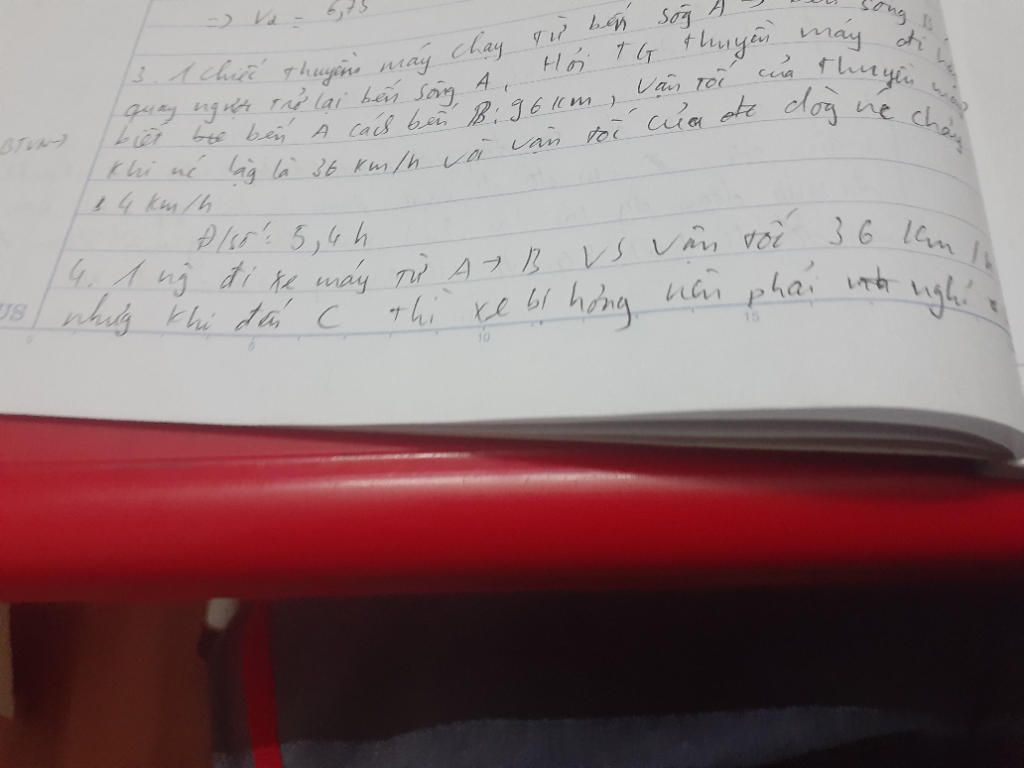 => Vd = 6,75
3. 1 chiếc thuyền máy chạy từ bến sôg A → bến sông B
quay ngược trở lại bến sông A. Hỏi TG thuyền máy đi
BTVN→ biết bến A cách bến B: 96 km, vận tốc của thuyền máy
khi nc lặg là 36 km/h và vận tốc của dòg nc chảy
4 km/h
Đ/số: 5,4 h
4. 1 ng đi xe máy từ A → B vs vận tốc 36 km/h
nhưg khi đến C thì xe bị hỏng nên phải nghỉ
5 10 15